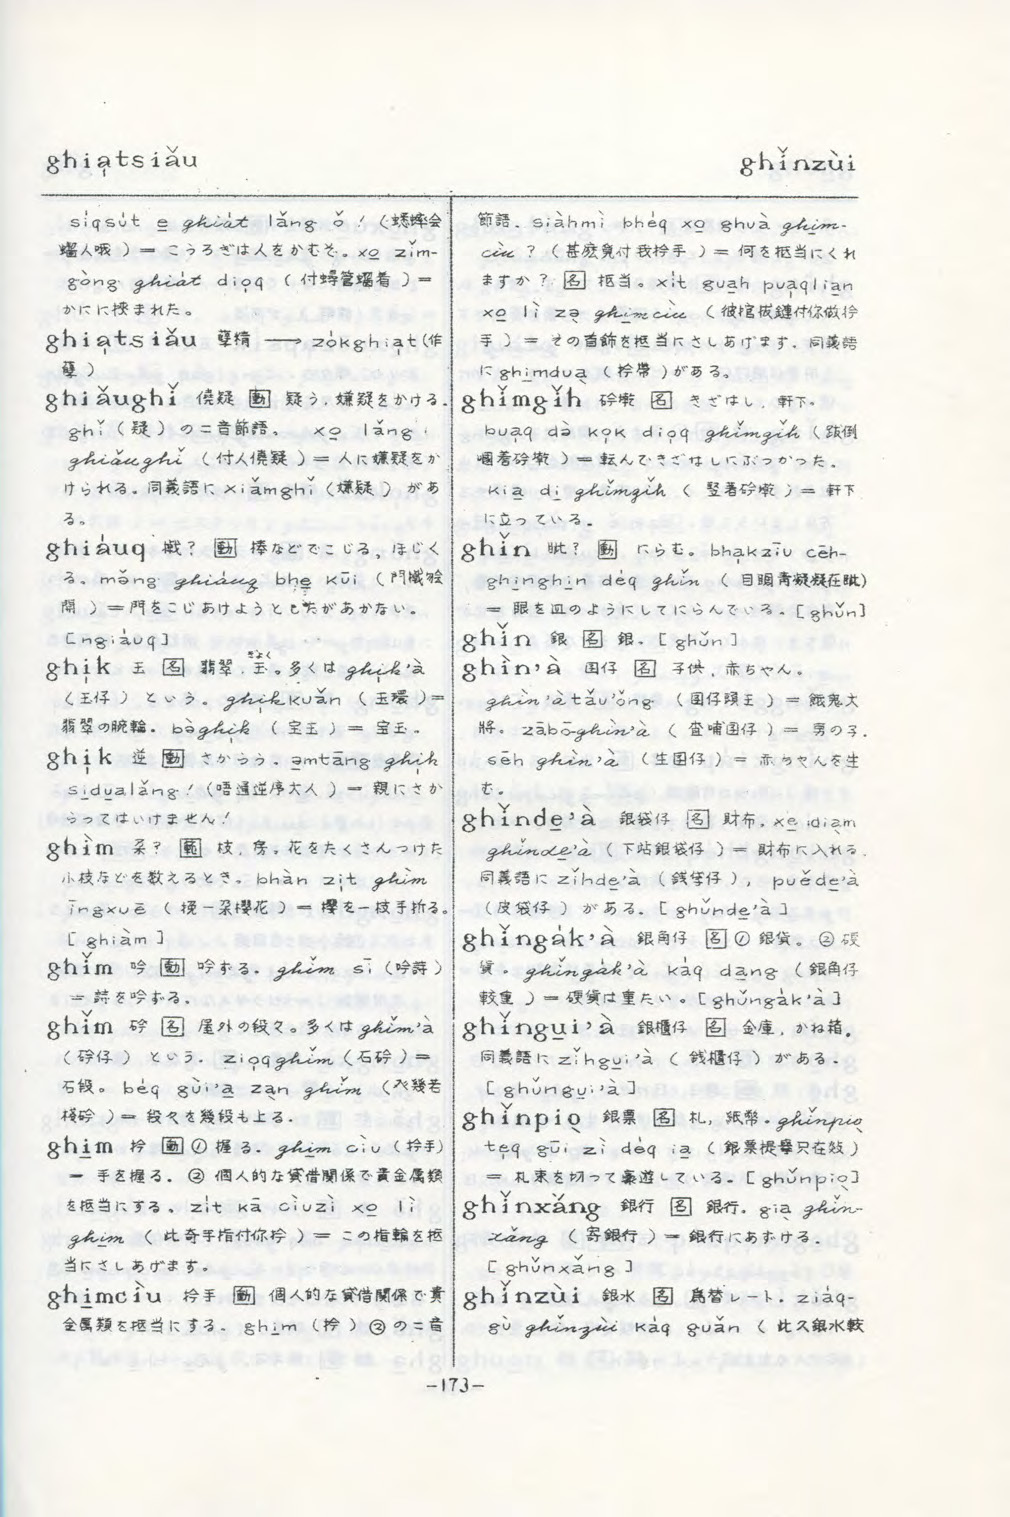 ghia̍tsiǎu
ghǐnzùi
síqsút e̲ ghiát lǎng ǒ! (蟋蟀会
蠘人哦) = こうろぎは人をかむぞ。xo̲ zǐm-
gòng ghiát dio̍q (付蟳管蠘着) =
かにに挾まれた。
ghia̍tsiǎu 孽精 → zókghia̍t (作
孽)
ghiǎughǐ 僥疑 動 疑う.嫌疑をかける.
ghǐ (疑) の二音節語。 xo̲ lǎng
ghiǎughǐ (付人僥疑) = 人に嫌疑をか
けられる。同義語に xiǎmghǐ (嫌疑) があ
る。
ghiáuq 動 棒などでこじる, ほじく
る. mǎng ghiáuq bhe̲ kūi
開) = 門をこじあけようとしたがあかない。
[ngiáuq]
ghi̍k 玉 名 翡翠.玉。多くは ghi̍k'à
(玉仔) という. ghi̍kkuǎn (玉環) =
翡翠の腕輪. bòghi̍k (宝玉) = 宝玉。
ghi̍k 逆 動 さからう. a̲mtāng ghi̍k
si̲dua̲lǎng! (唔通逆序大人) = 親にさか
らってはいけません!
ghìm 朶? 枝, 房。花をたくさんつけた
小枝などを数えるとき。bhàn zi̍t ghìm
īngxuē (挽一朶櫻花) = 櫻を一枝手折る。
[ghiàm]
ghǐm 吟 動 吟ずる. ghǐm sī (吟詩)
= 詩を吟ずる.
ghǐm 砛 名 屋外の段々。多くは ghǐm'à
(砛仔) という. zio̍qghǐm (石砛) =
石段。 béq gùi'a̲ za̲n ghǐm
棧砛) = 段々を幾段も上る.
ghi̲m 扲 動 ① 握る. ghi̲m cìu (扲手)
= 手を握る. ② 個人的な貸借関係で貴金属類
を抵当にする. zít kā cìuzì xo̲ lì
ghi̲m (此奇手指付你扲) = この指輪を抵
当にさしあげます。
ghi̲mcìu 扲手 動 個人的な貸借関係で貴
金属類を抵当にする. ghi̲m (扲) ②の二音
節語. siàhmì bhéq xo̲ ghuà ghi̲m-
cìu? = 何を抵当にくれ
ますか? 名 抵当。xít gua̲h pua̍qlia̲n
xo̲ lì zə̲ ghi̲mcìu
手) = その首飾を抵当にさしあげます. 同義語
に ghi̲mdua̲ (扲帶) がある。
ghǐmgǐh 砛墘 名 きざはし. 軒下。
bua̍q dà ko̍k dio̍q ghǐmgǐh (跋倒
着砛墘) = 転んできざはしにぶつかった.
kia̲ di̲ ghǐmgǐh (竪著砛墘) = 軒下
に立っている.
ghǐn 動 にらむ. bha̍kzīu cēh-
ghi̲nghi̲n déq ghǐn
= 眼を皿のようにしてにらんでいる. [ghǔn]
ghǐn 銀 名 銀. [ghǔn]
ghìn'à 囝仔 名 子供, 赤ちゃん.
ghìn'àtǎu'ǒng (囝仔頭王) = 餓鬼大
將. zābōghìn'à (査哺囝仔) = 男の子.
sēh ghìn'à (生囝仔) = 赤ちゃんを生
む.
ghǐnde̲'à 銀袋仔 名 財布. xe̲ idiam
ghǐnde̲'à (下站銀袋仔) = 財布に入れる.
同義語に zǐhde̲'à, puěde̲'à
(皮袋仔) がある. [ghǔnde̲'à]
ghǐngák'à 銀角仔 名 ① 銀貨。② 硬
貨. ghǐngák'à káq da̲ng (銀角仔
較重) = 硬貨は重たい。[ghǔngák'à]
ghǐngui̲'à 銀櫃仔 名 金庫, かね箱.
同義語に zǐhgui̲'à (銭櫃仔) がある.
[ghǔngui̲'à]
ghǐnpio̲ 銀票 名 札, 紙幣. ghǐnpio̲
te̍q gūi zì déq ia̲
= 札束を切って豪遊している。[ghǔnpio̲]
ghǐnxǎng 銀行 名 銀行. gia̲ ghǐn-
xǎng (寄銀行) = 銀行にあずける.
[ghǔnxǎng]
ghǐnzùi 銀水 名 爲替レート. ziáq-
gù ghǐnzùi káq guǎn (此久銀水較
-173-